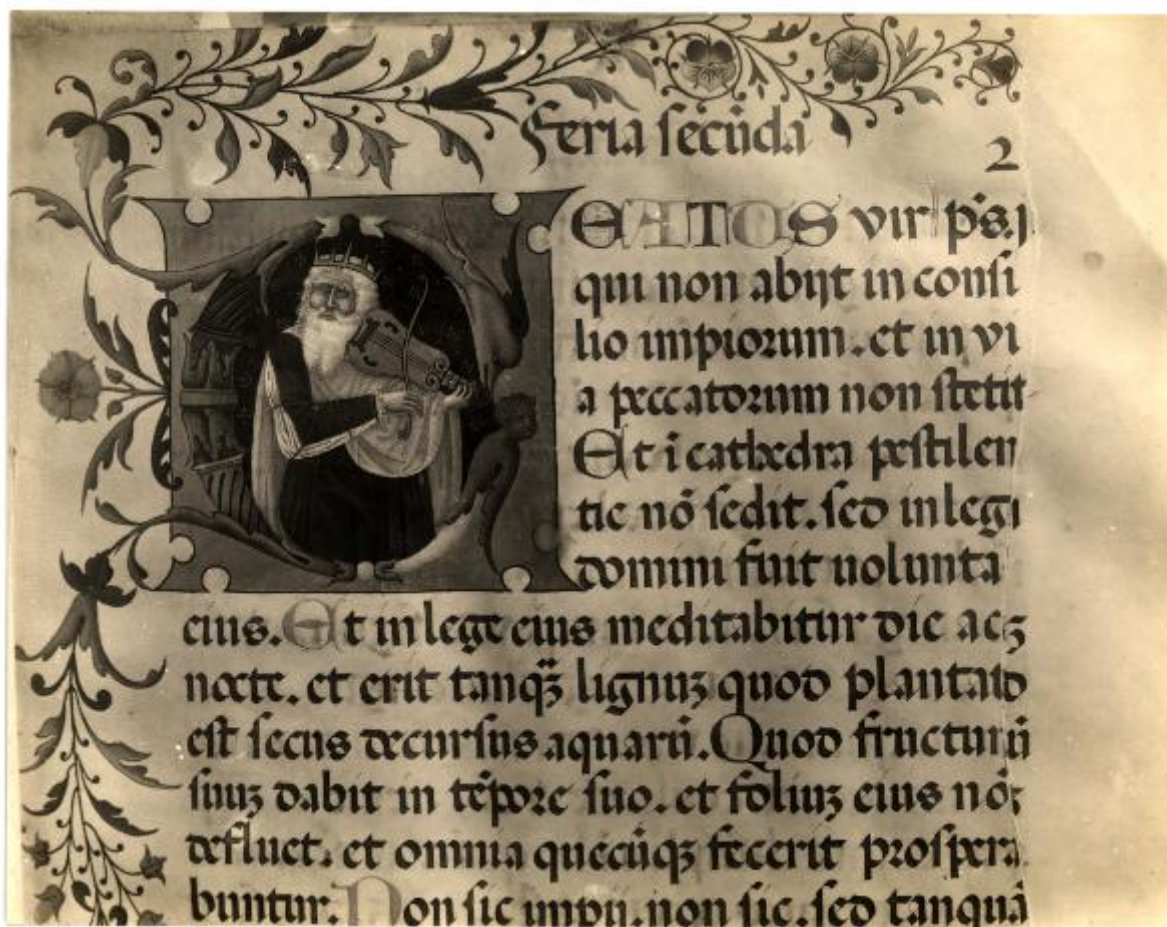 Feria secūda
2
EATOS vir p̄s. j
qui non abijt in consi
lio impiorum. et in vi
a peccatorum non stetit
Et ī cathedra pestilen
tie nō sedit. sed in legi
domini fuit uolunta
eius. Et in lege eius meditabitur die acꝫ
nocte. et erit tanqꝫ̄ lignuꝫ quod plantatō
est secus decursus aquarū. Quod fructum̄
suuꝫ dabit in tēpore suo. et foliuꝫ eius nōꝫ
defluet. et omnia quecūqꝫ fecerit prospera
buntur. Non sic impij. non sic. sed tanquā